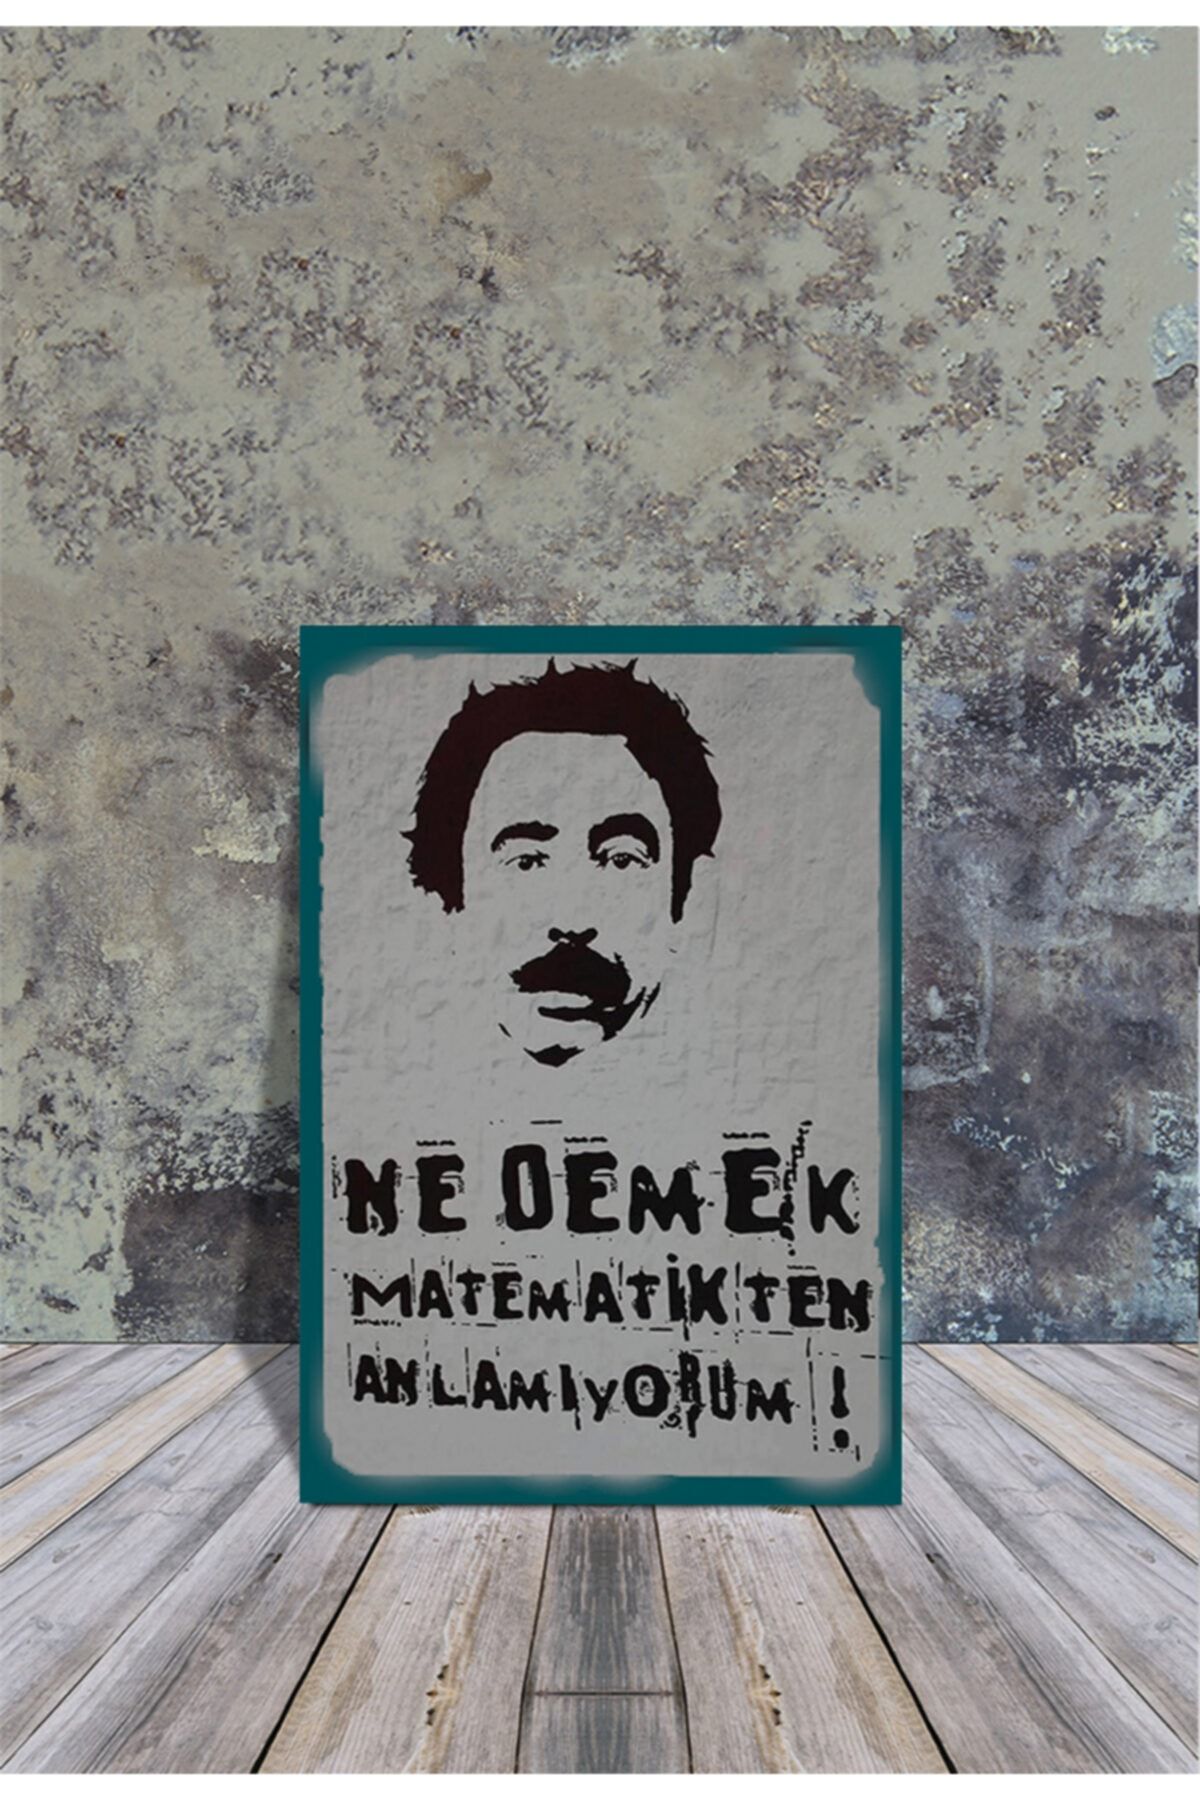 NE DEMEK
MATEMATİKTEN
ANLAMIYORUM !